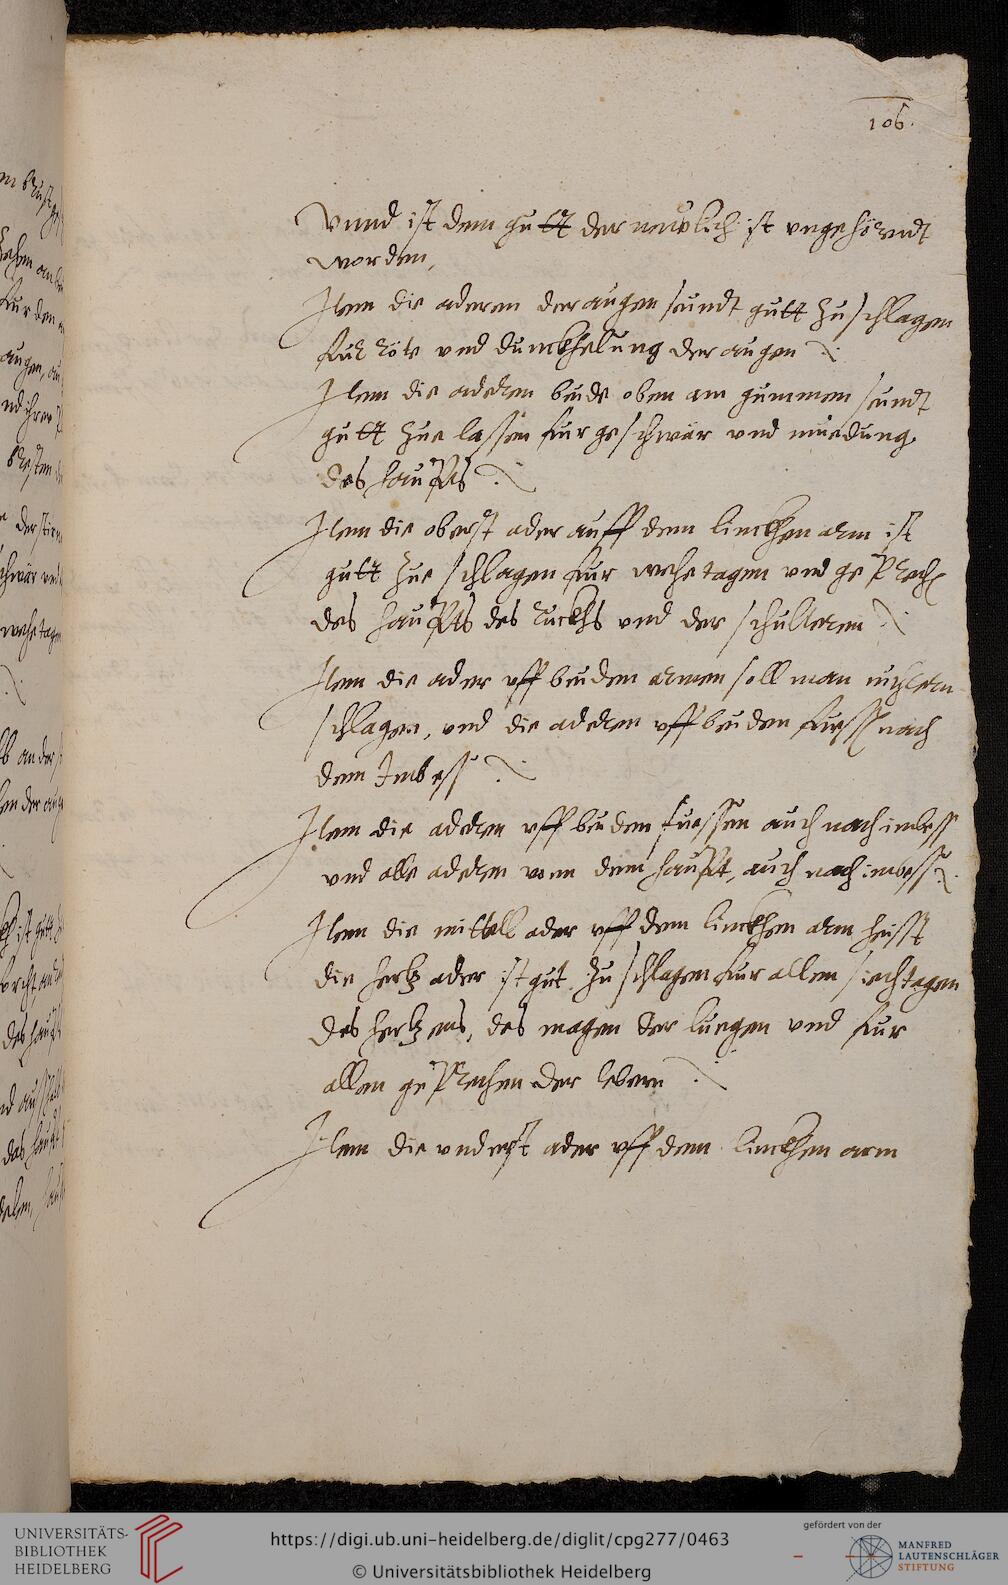 106.
Vnnd ist dem gutt der newlich ist vngehörendt
worden,
Item die aderen der augen seindt gutt zu schlagen
fur röte vnd dunckhelung der augen
Item die aderen beide oben am gummen seindt
gutt zue lassen fur geschwär vnd müedung
des haupts
Item die oberst ader auff dem linckhen arm ist
gutt zue schlagen fur wehetagen vnd geprech
des haupts des ruckhs vnd der schulteren
Item die ader vff beiden armen soll man nüchtern
schlagen, vnd die aderen vff beiden fuess nach
dem Imbess
Item die aderen vff beiden fuessen auch nach imbess
vnd alle aderen vonn dem haupt, auch nach imbess
Item die mittell ader vff dem linckhen arm heisst
die hertz ader ist gut zu schlagen fur allen siechtagen
des hertzens, des magen der lungen vnd fur
allen geprechen der lebern
Item die vnderst ader vff dem linckhen arm
UNIVERSITÄTS-
BIBLIOTHEK
HEIDELBERG
https://digi.ub.uni-heidelberg.de/diglit/cpg277/0463
© Universitätsbibliothek Heidelberg
gefördert von der
MANFRED
LAUTENSCHLÄGER
STIFTUNG